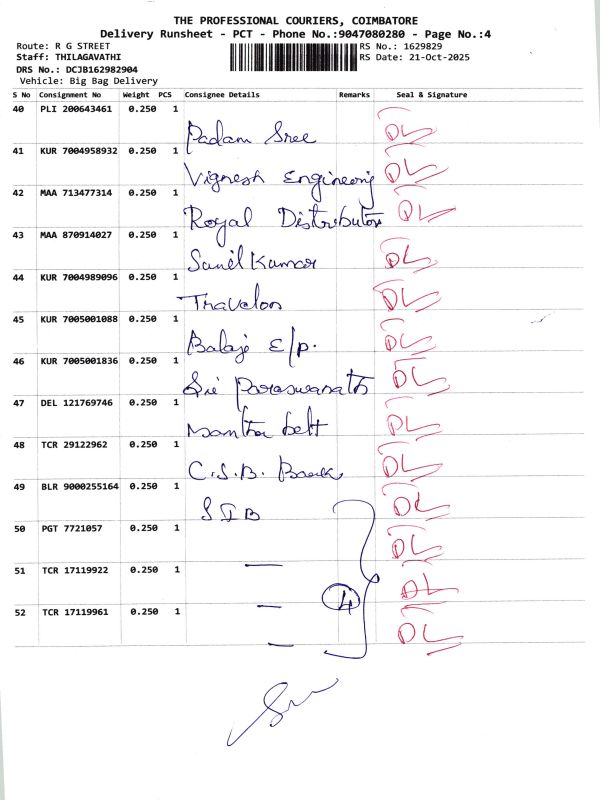 THE PROFESSIONAL COURIERS, COIMBATORE
Delivery Runsheet - PCT - Phone No.:9047080280 - Page No.:4
Route: R G STREET RS No.: 1629829
Staff: THILAGAVATHI RS Date: 21-Oct-2025
DRS No.: DCJB162982904
Vehicle: Big Bag Delivery
S No Consignment No Weight PCS Consignee Details Remarks Seal & Signature
40 PLI 200643461 0.250 1
Padam Sree DL
41 KUR 7004958932 0.250 1
Vignesh Engineering DL
42 MAA 713477314 0.250 1
Royal Distributors DL
43 MAA 870914027 0.250 1
Sunil Kumar DL
44 KUR 7004989096 0.250 1
Travelon DL
45 KUR 7005001088 0.250 1
Balaji E/p. DL
46 KUR 7005001836 0.250 1
Sri Paraswanath DL
47 DEL 121769746 0.250 1
Mantra belt DL
48 TCR 29122962 0.250 1
C.S.B. Bank DL
49 BLR 9000255164 0.250 1
SIB DL
50 PGT 7721057 0.250 1
— DL
51 TCR 17119922 0.250 1
— 4 DL
52 TCR 17119961 0.250 1
— DL